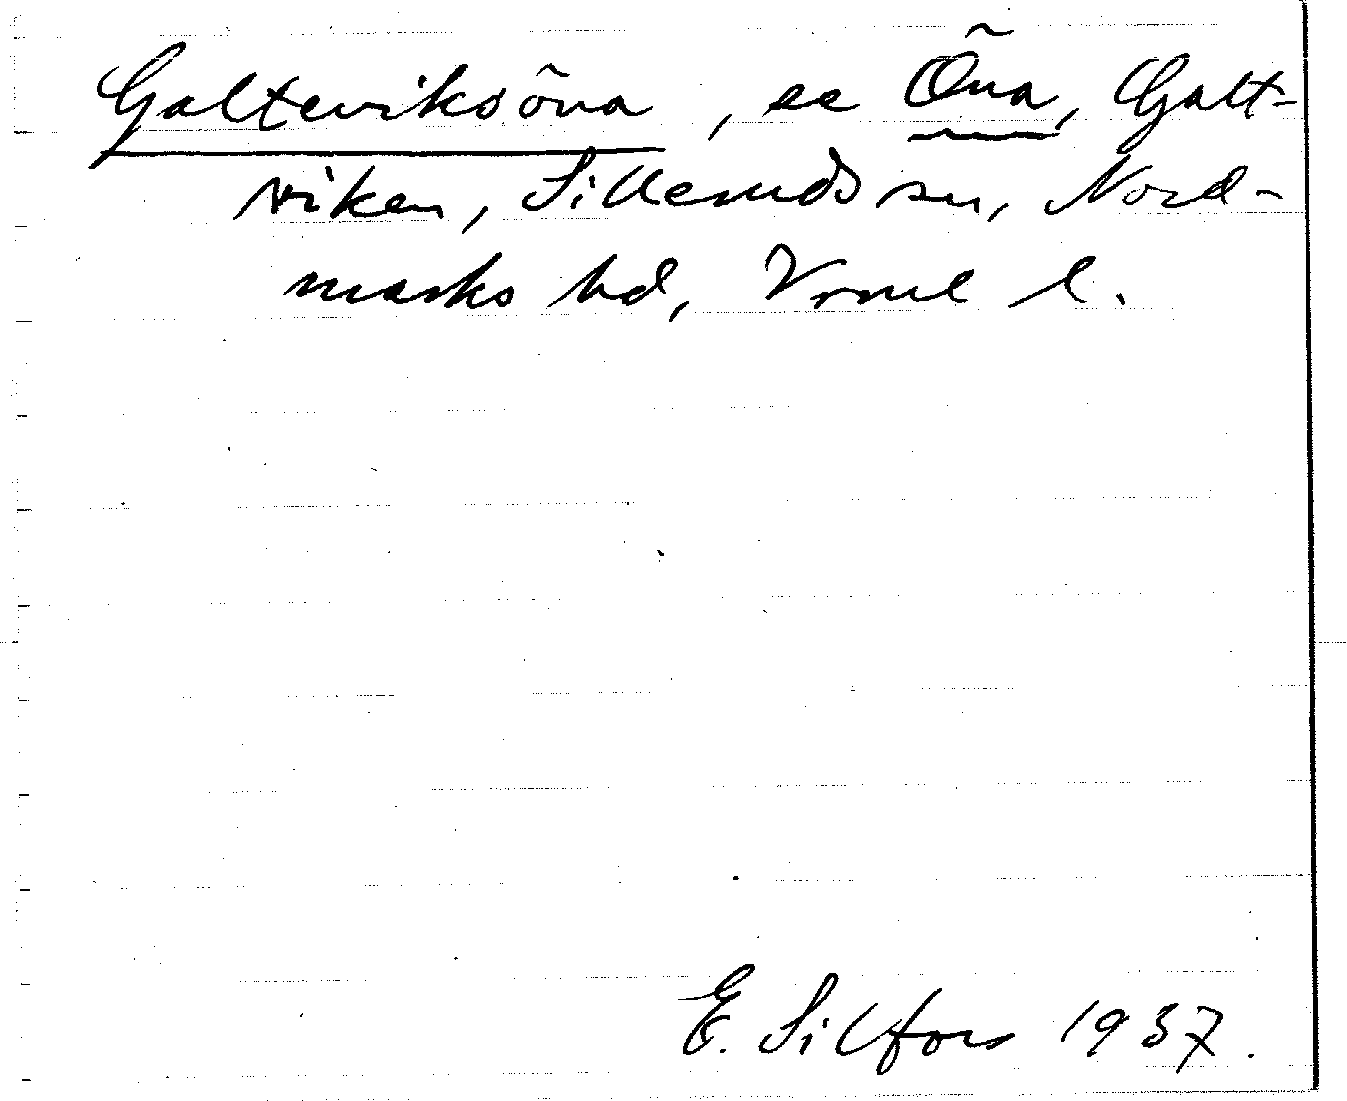 Galteviksõna, se Õna, Galt-
viken, Silleruds sn, Nord-
marks hd, Vrml l.
E. Silfors 1937.